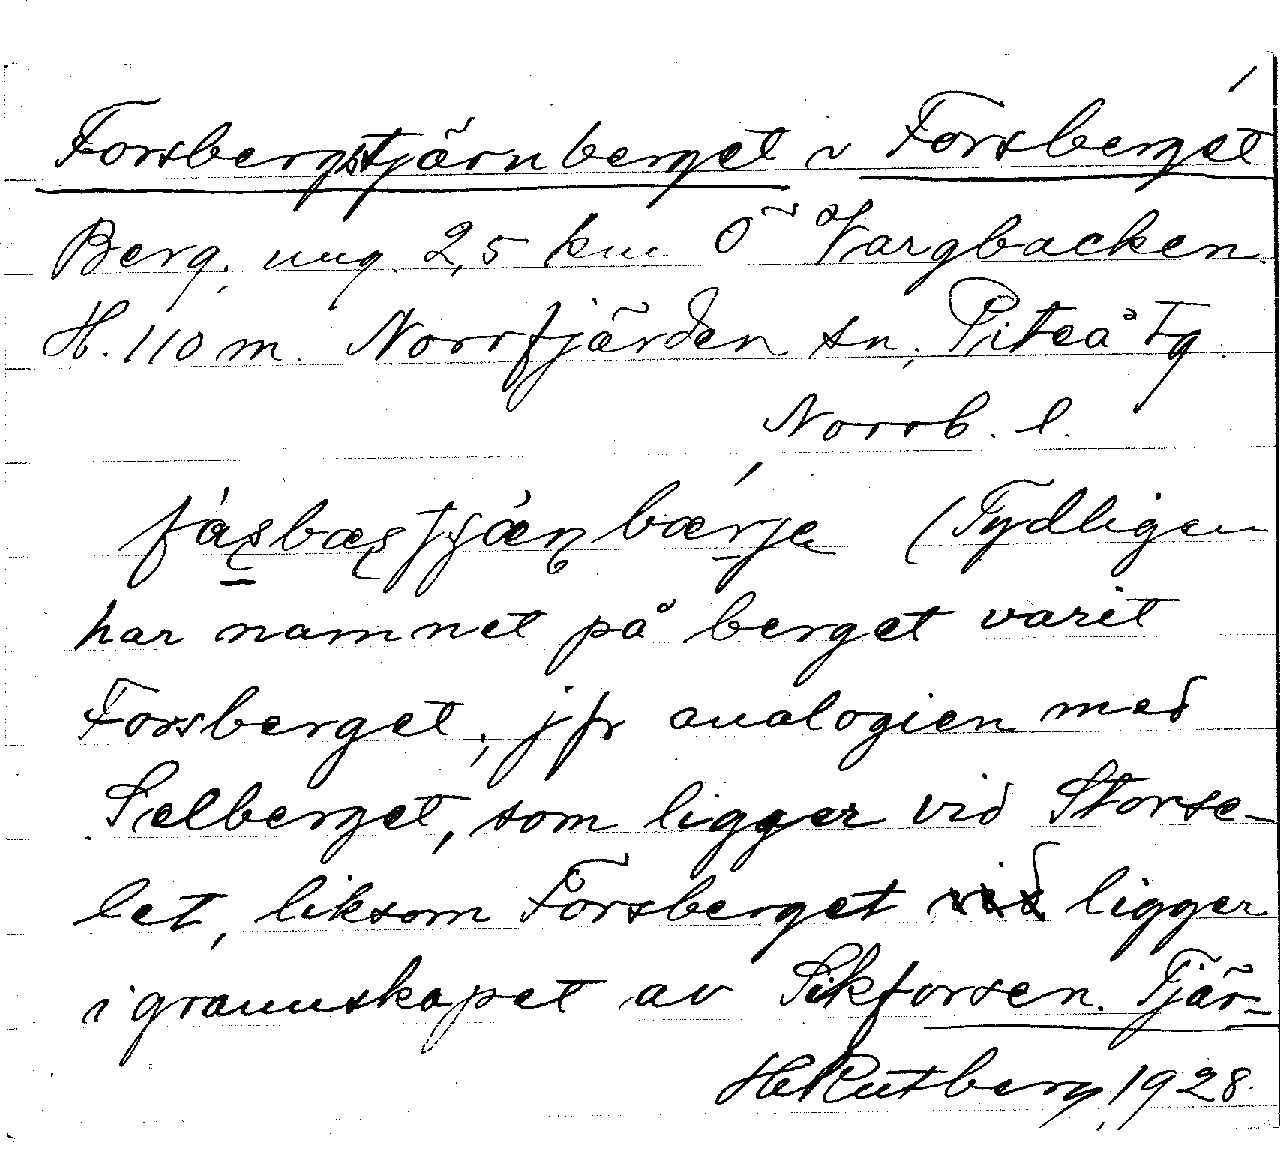 Forsbergstjärnberget v Forsberget
Berg, ung. 2,5 km Ö Vargbacken.
H. 110 m. Norrfjärden sn, Piteå tg.
Norrb. l.
(Tydligen
har namnet på berget varit
Forsberget, jfr analogien med
Selberget, som ligger vid Storse-
let, liksom Forsberget ligger
i grannskapet av Sikforsen. Tjär-
H Rutberg, 1928.